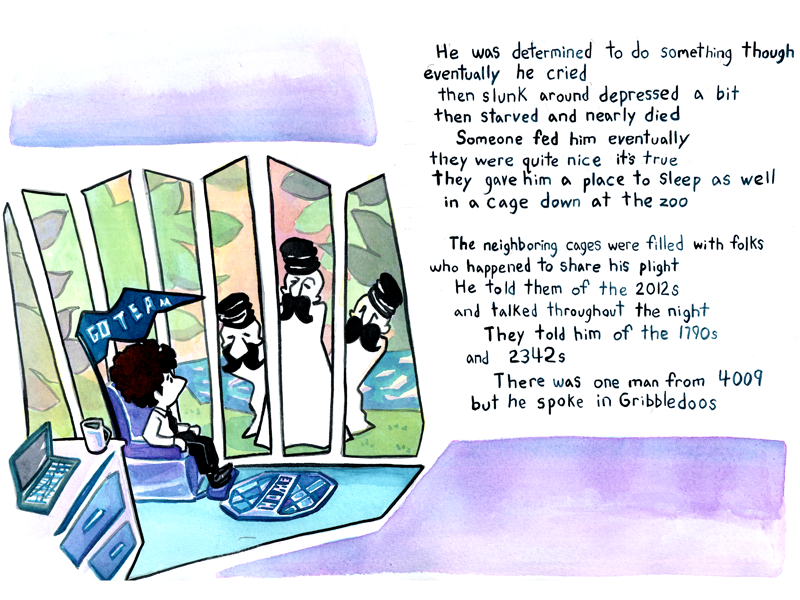 He was determined to do something though
eventually he cried
then slunk around depressed a bit
then starved and nearly died
Someone fed him eventually
they were quite nice it's true
they gave him a place to sleep as well
in a cage down at the zoo
The neighboring cages were filled with folks
who happened to share his plight
He told them of the 2012s
and talked throughout the night
They told him of the 1790s
and 2342s
There was one man from 4009
but he spoke in Gribbledoos
GO TEAM
HOME